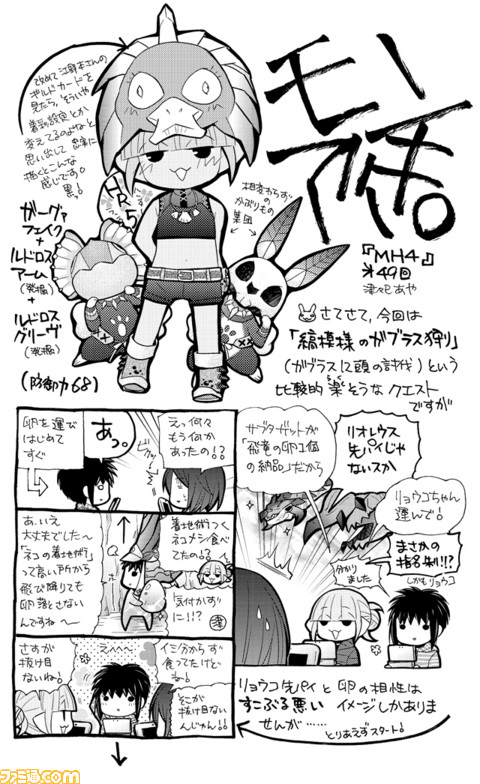 モンハチ。
『MH4』
第49回
津々巳あや
改めて江野本さんの
ギルドカードを
見たら、そういや
着彩設定とか
変えてるのよなと
思い出して
描くとこんな
感じです。
黒!
HR5
相変わらずの
かぶりもの
集団
ガーグァ
フェイク
+
ルドロス
アーム
(発掘)
+
ルドロス
グリーヴ
(発掘)
(防御力68)
さてさて、今回は
「縞模様のガブラス狩り」
(ガブラス12頭の討伐)という
比較的楽そうなクエスト
ですが
サブターゲットが
「飛竜の卵1個
の納品」だから
リオレウス
先パイじゃ
ないスか
リョウコちゃん
運んで!
まさかの
指名制!!?
しかもリョウコ
分かりました
リョウコ先パイと卵の相性は
すこぶる悪いイメージしかありま
せんが……
とりあえずスタート!
卵を運び
はじめて
すぐ
あっ。
えっ何々
もう何か
あったの!?
あ、いえ
大丈夫でした〜
「ネコの着地術」
って高い所から
飛び降りても
卵落とさない
んですね〜
着地術つく
ネコメシ食べ
てたの!?
気付かずに
!!?
さすが
抜け目
ないね!
えへへ〜
イミ分からず
食ってたけど
ね!
そこが
抜け目ない
んじゃん!!
ファミ通.com